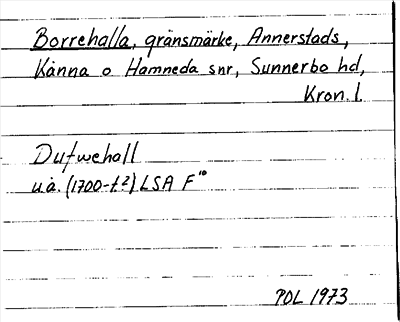 Borrehalla, gränsmärke, Annerstads,
Kånna o Hamneda snr, Sunnerbo hd,
Kron. l.
Dufwehall
u.å. (1700-t?) LSA F¹⁰
POL 1973